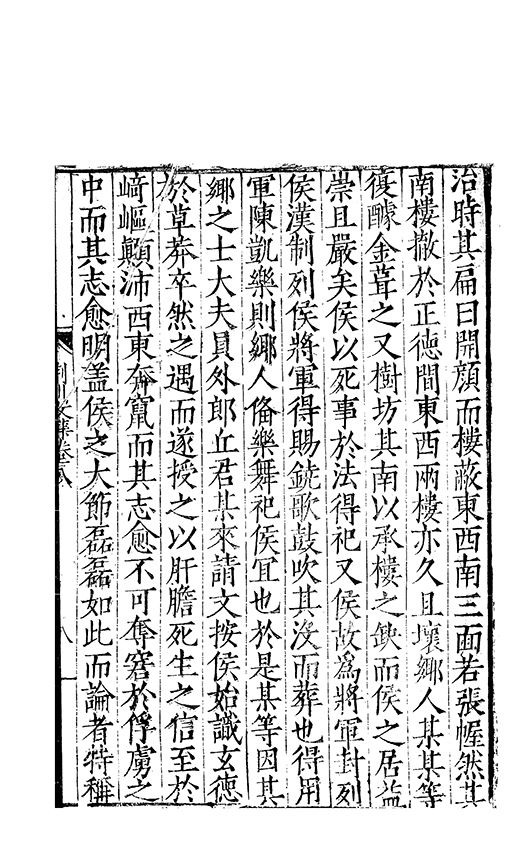 治時其扁曰開顔而樓蔽東西南三面若張幄然其
南樓撤於正德間東西兩樓亦久且壞鄉人某某等
復醵金葺之又樹坊其南以承樓之缺而侯之居益
崇且嚴矣侯以死事於法得祀又侯故為將軍封列
侯漢制列侯將軍得賜鐃歌鼓吹其沒而葬也得用
軍陳凱樂則鄉人俻樂舞祀侯宜也於是某等因其
鄉之士大夫員外郎丘君某來請文按侯始識玄德
於草莽卒然之遇而遂授之以肝膽死生之信至於
崎嶇顛沛西東奔竄而其志愈不可奪窘於俘虜之
中而其志愈明盖侯之大節磊磊如此而論者特稱
荆川文集卷八
八